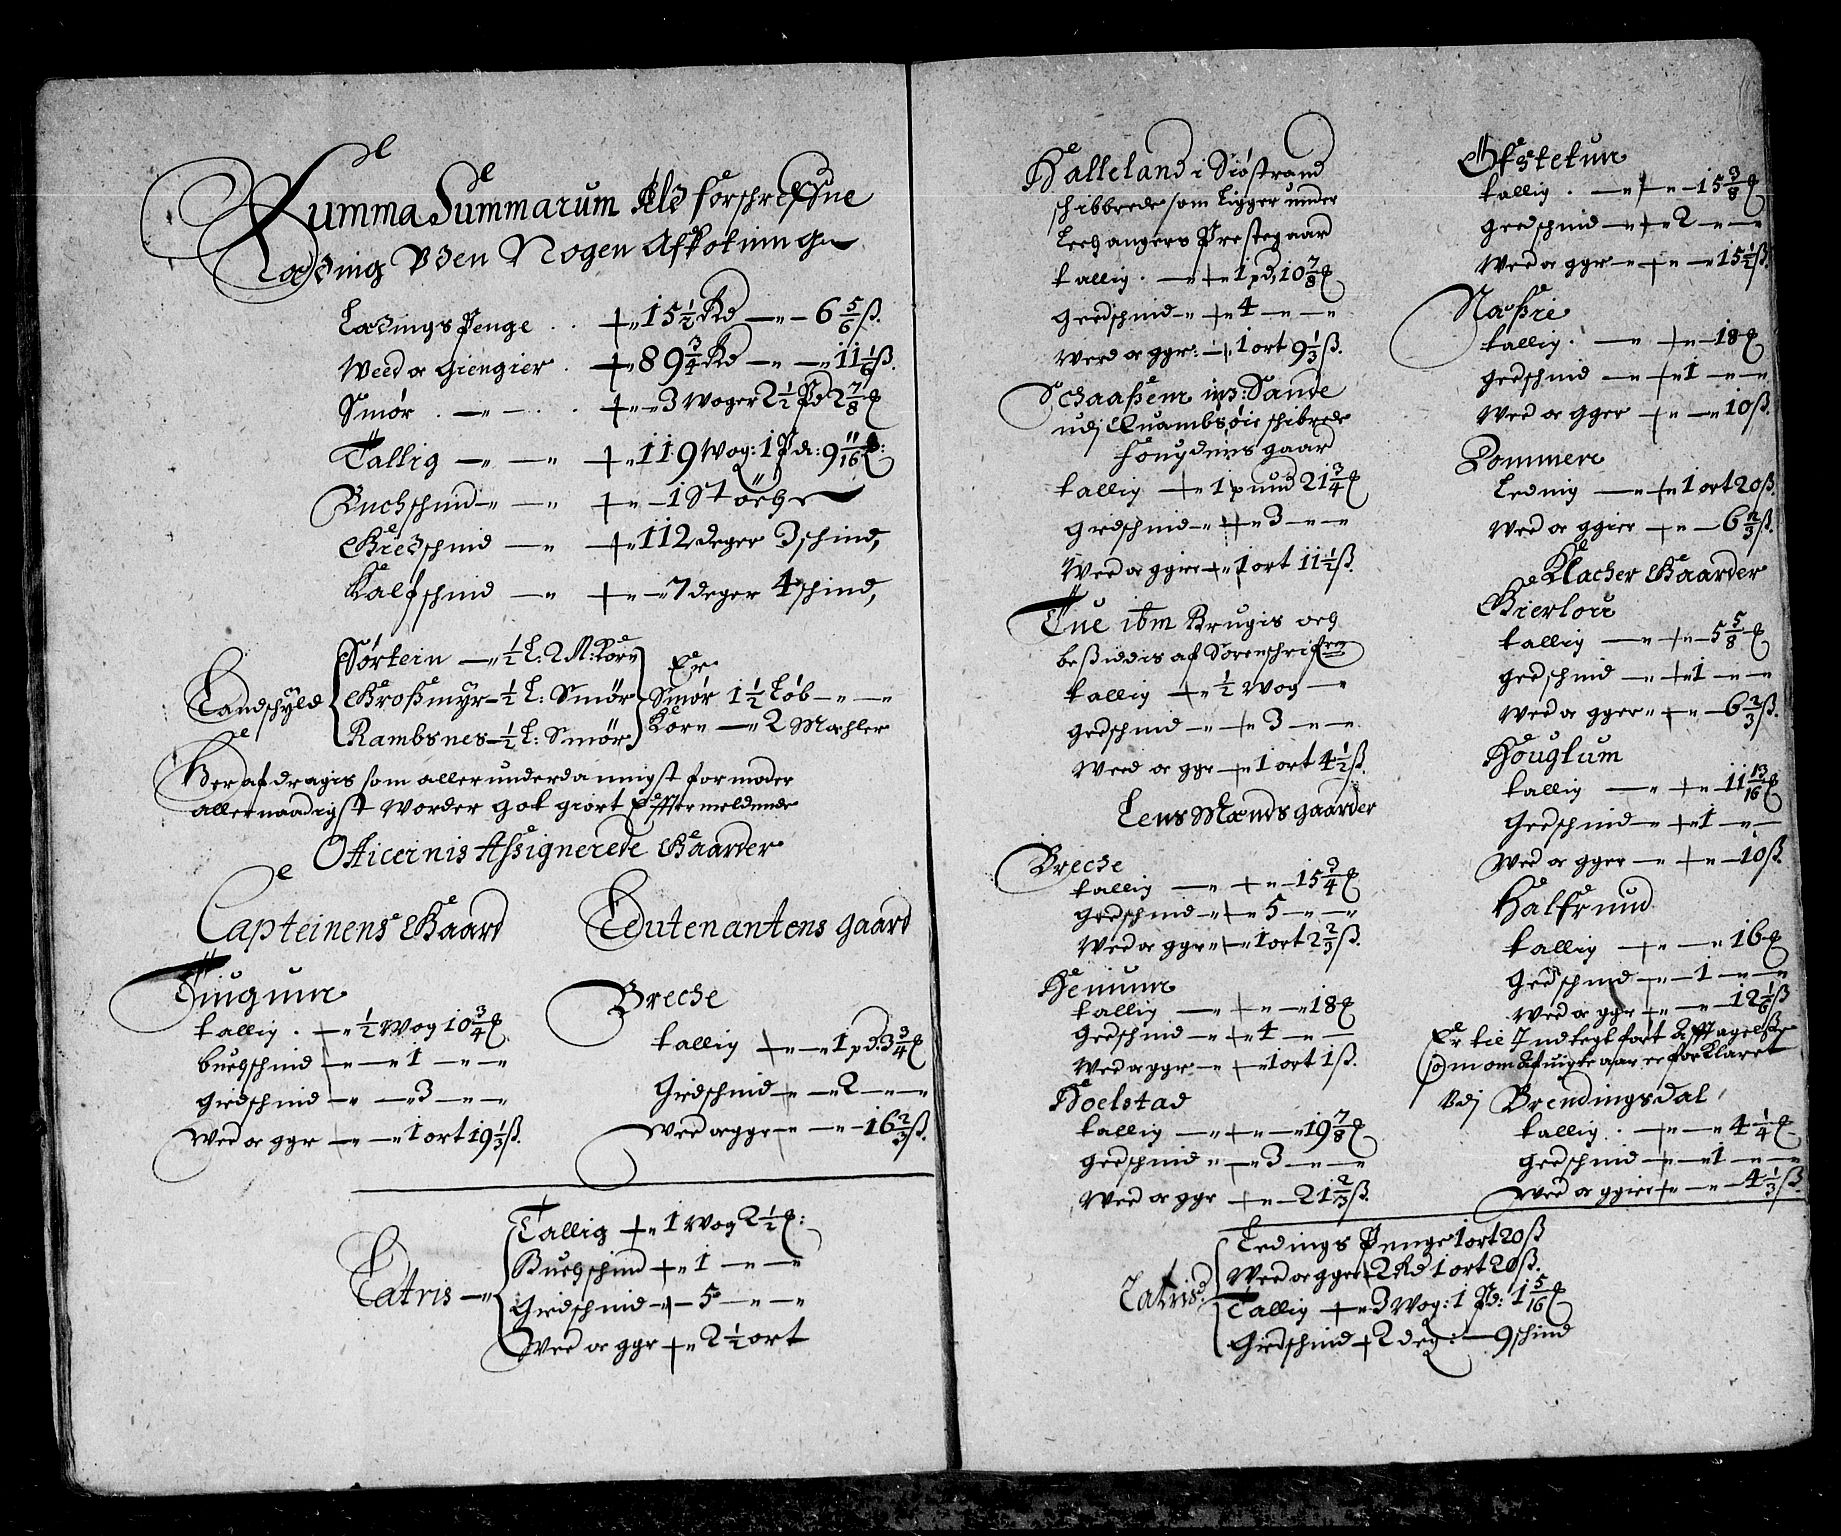 Summa Summarum Ald forschreffne
Læding Uden Nogen Afkotning
Lædings Penge . . 15 1/2 Rd — 6 5/6 ß.
Weed oc Giengier . 89 3/4 Rd — 11 1/6 ß.
Smør . — . . 3 Woger 2 1/2 Pd 2 7/8 ℔
Tallig — 119 Wog: 1 Pd: 9 11/16 ℔:
Buchschind — 1 Støche
Giedschind — 112 deger 3 schind,
Kalfschind — 7 deger 4 schind,
Landschyld
Sørtein — 1/2 L: 2 M: Korn
Großmyr — 1/2 L: Smør
Rambsnes — 1/2 L: Smør
Er
Smør 1 1/2 Løb —
Korn — 2 Mæhler
Her afdragis som allerunderdannigst formoder
allernaadigst worder got giort Efftermeldende
Officernis Assignerede Gaarder
Capteinens Gaard
Tiugumr
tallig . — 1/2 Wog 10 3/4 ℔
buchschind — 1 —
giedschind — 3 —
Wed oc ggr — 1 ort 19 1/3 ß.
Leutenantens gaard
Breche
tallig — 1 pd. 3 3/4 ℔
Giedschind — 2 —
Wed oc ggr — 16 2/3 ß.
Latris —
Tallig 1 Wog 2 1/2 ℔:
Buchschind 1 —
Giedschind — 5 —
Wed oc ggr 2 1/2 ort
Halleland i Siøstrand
schibbrede som Ligger under
Lechangers Prestegaard
tallig . — 1 pd. 10 7/8 ℔
Giedschind — 4 —
Wed oc ggr: — 1 ort 9 1/3 ß.
udj Quambsøie schibrede
fougdens gaard
tallig — 1 pund 21 3/4 ℔
Giedschind — 3 —
Wed oc ggier 1 ort 11 1/2 ß.
Tue ibm Brugis och
beßiddis af Sorenschrifren
tallig — 1/2 Wog —
giedschind — 3 —
Weed oc ggr — 1 ort 4 1/2 ß.
Lens Mænds gaarder
Breche
tallig — 15 3/4 ℔
giedschind — 5 —
Wed oc ggr — 1 ort 2 2/3 ß.
Henumr
tallig — 18 ℔
Giedschind — 4 —
Wed oc ggr — 1 ort 1 ß.
Hoelstad
tallig — 19 7/8 ℔
giedschind — 3 —
Wed oc ggr — 21 2/3 ß.
Ofstetun
tallig . — 15 3/8 ℔
giedschind — 2 —
Wed oc ggr — 15 1/2 ß.
Næßie
tallig . — 18 ℔
giedschind — 1 —
Wed oc gger — 10 ß.
Dommere
Leding — 1 ort 20 ß.
Wed oc ggier — 6 2/3 ß.
Klocher Gaarder
Gierlou
tallig — 5 5/8 ℔
giedschind — 1 —
Wed oc gger — 6 2/3 ß.
Houglum
tallig — 11 13/16 ℔
Giedschind — 1 —
Wed oc gger — 10 ß.
Halfrund
tallig — 16 ℔
Giedschind — 1 —
Wed oc ggr — 12 1/6 ß
Er til Indtegt fort
Udj Brendingsdal
tallig . — 4 1/4 ℔
giedschind — 1 —
Wed oc ggier — 4 1/3 ß.
Latris:
Ledings Penge 1 ort 20 ß
Wed oc gger 2 Rd 1 ort 20 ß.
Tallig — 3 Wog: 1 Pd: 1 5/16 ℔
Giedschind 2 deg: — 9 schind